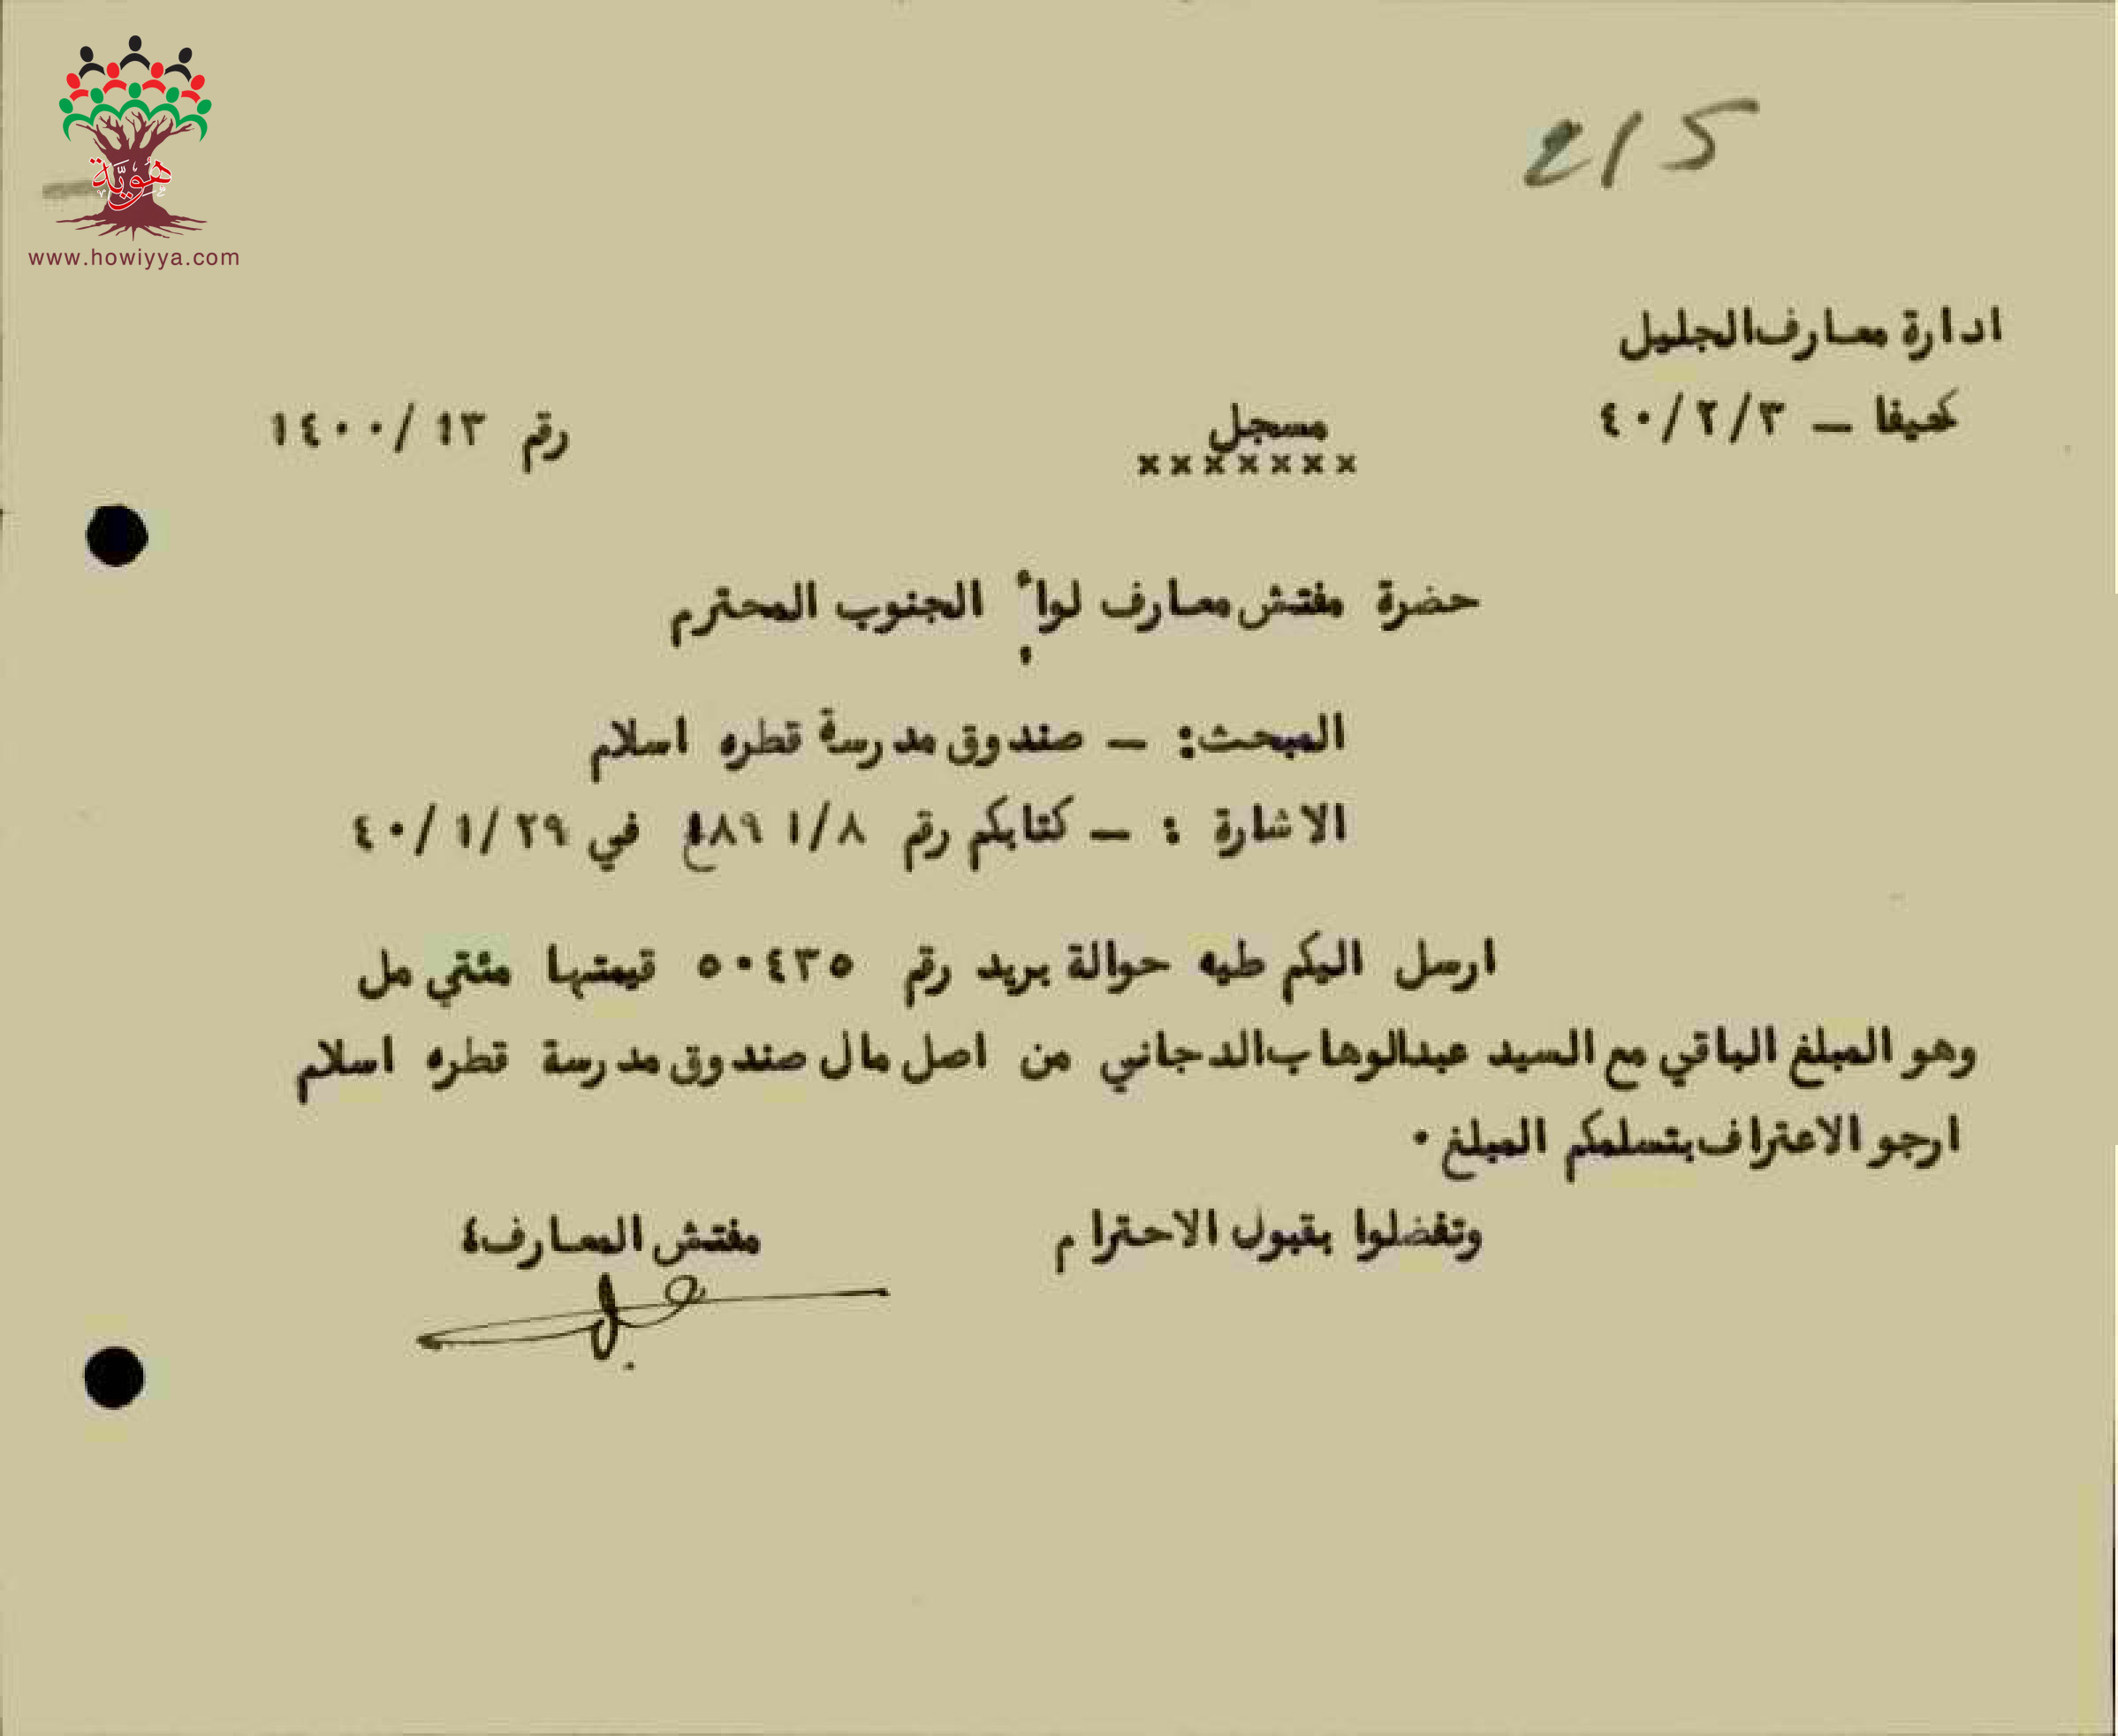 هويّة
www.howiyya.com
2/5
ادارة معارف الجليل
حيفا – ٤٠/٢/٣
مسجل
×××××××
رقم ١٤٠٠/١٣
حضرة مفتش معارف لواء الجنوب المحترم
المبحث: – صندوق مدرسة قطره اسلام
الاشارة : – كتابكم رقم ١/٨ في ٤٠/١/٢٩
ارسل اليكم طيه حوالة بريد رقم ٥٠٤٣٥ قيمتها مئتي مل
وهو المبلغ الباقي مع السيد عبدالوهاب الدجاني من اصل مال صندوق مدرسة قطره اسلام
ارجو الاعتراف بتسلمكم المبلغ ٠
وتفضلوا بقبول الاحترام
مفتش المعارف